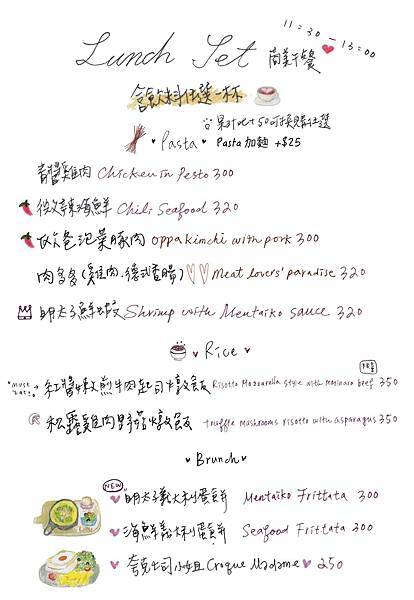 11:30 - 13:00
Lunch Set 商業午餐
含飲料任選一杯
果汁此+50可換購任選
Pasta Pasta加麵 +$25
青醬雞肉 Chicken in Pesto 300
微辣海鮮 Chili Seafood 320
歐爸泡菜豚肉 oppa kimchi with pork 300
肉多多(雞肉、德式香腸) Meat lovers' paradise 320
明太子鮮蝦 Shrimp with Mentaiko sauce 320
Rice
"must eat" → 紅醬嫩煎牛肉起司燉飯 Risotto Mozzarella style with marinara beef 350
松露雞肉野菇燉飯 truffle mushrooms risotto with asparagus 350
Brunch
NEW
明太子義大利蛋餅 Mentaiko Frittata 300
海鮮義大利蛋餅 Seafood Frittata 300
夸克吐司小姐 Croque Madame 250